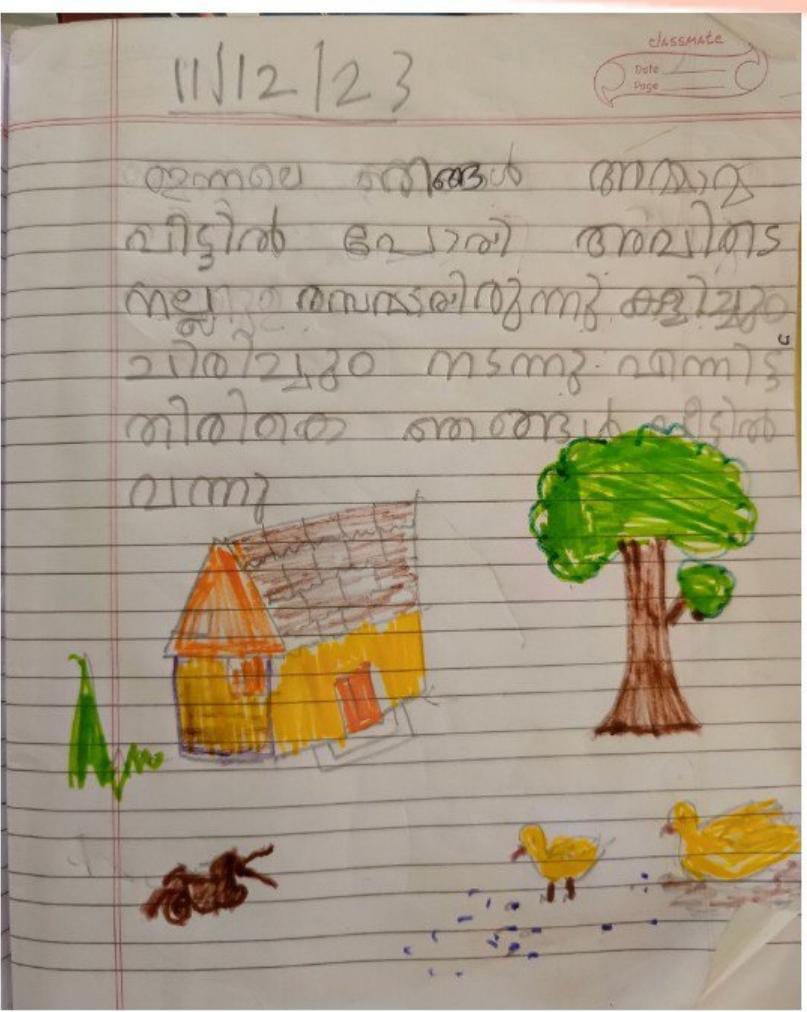 classmate
Date
Page
11/12/23
ഇന്നലെ ഞങ്ങൾ അമ്മാമ്മ
വീട്ടിൽ പോയി അവിടെ
നല്ല രസമായിരുന്നു കളിച്ചും
ചിരിച്ചും നടന്നു. എന്നിട്ട്
തിരികെ ഞങ്ങൾ വീട്ടിൽ
വന്നു